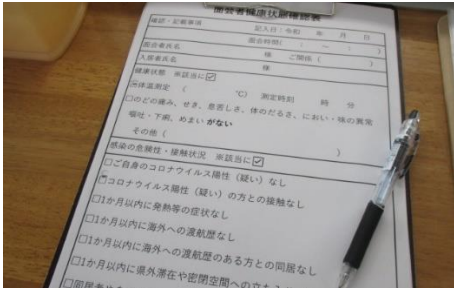 面会者健康状態確認表
確認・記載事項 記入日：令和 年 月 日
面会時間（ ： ～ ： ）
面会者氏名 様 ご関係（ ）
入居者氏名 様
健康状態 ※該当に☑
□体温測定（ ℃） 測定時刻 時 分
□のどの痛み、せき、息苦しさ、体のだるさ、におい・味の異常
嘔吐・下痢、めまい がない
その他（ ）
感染の危険性・接触状況 ※該当に☑
□ご自身のコロナウイルス陽性（疑い）なし
□コロナウイルス陽性（疑い）の方との接触なし
□1か月以内に発熱等の症状なし
□1か月以内に海外への渡航歴なし
□1か月以内に海外への渡航歴のある方との同居なし
□1か月以内に県外滞在や密閉空間への立ち入
□同居者や